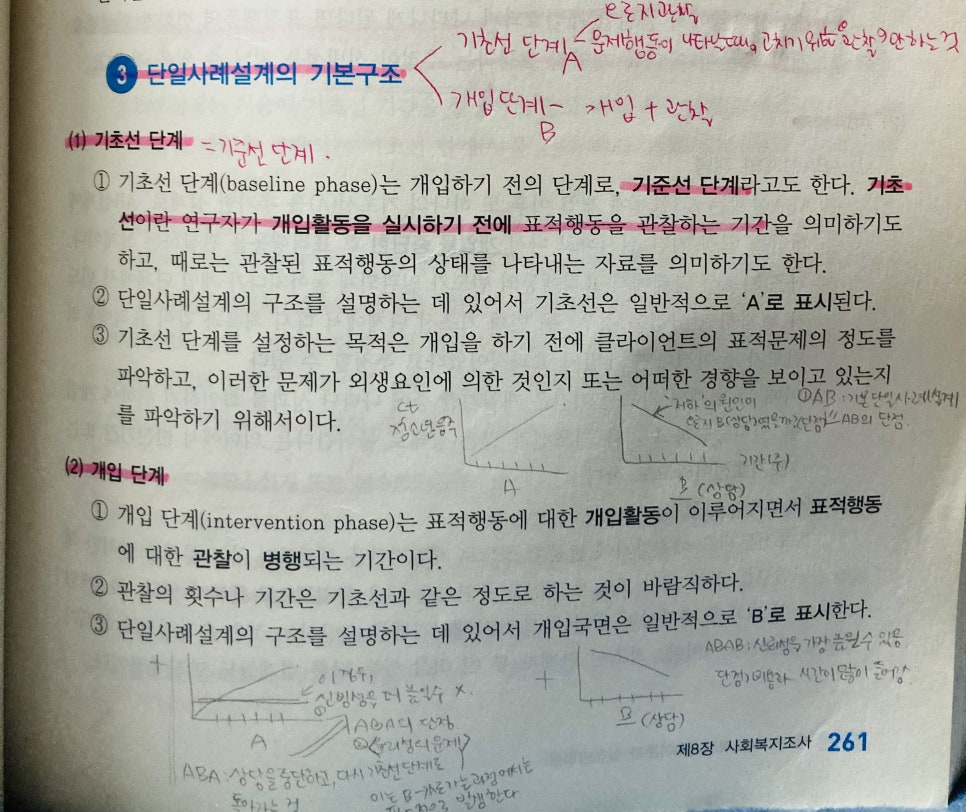 오로지 관찰
기초선 단계 - 문제행동이 나타났을때, 고치기위한 관찰 안하는 것
A
③ 단일사례설계의 기본구조
개입단계 - 개입 + 관찰
B
(1) 기초선 단계 = 기준선 단계.
① 기초선 단계(baseline phase)는 개입하기 전의 단계로, 기준선 단계라고도 한다. 기초
선이란 연구자가 개입활동을 실시하기 전에 표적행동을 관찰하는 기간을 의미하기도
하고, 때로는 관찰된 표적행동의 상태를 나타내는 자료를 의미하기도 한다.
② 단일사례설계의 구조를 설명하는 데 있어서 기초선은 일반적으로 ‘A’로 표시된다.
③ 기초선 단계를 설정하는 목적은 개입을 하기 전에 클라이언트의 표적문제의 정도를
파악하고, 이러한 문제가 외생요인에 의한 것인지 또는 어떠한 경향을 보이고 있는지
를 파악하기 위해서이다.
ct
청소년음주
A
'저하'의 원인이
오로지 B(상담)였을까?(단점)
①AB:기본단일사례설계
AB의 단점.
기간(주)
B (상담)
(2) 개입 단계
① 개입 단계(intervention phase)는 표적행동에 대한 개입활동이 이루어지면서 표적행동
에 대한 관찰이 병행되는 기간이다.
② 관찰의 횟수나 기간은 기초선과 같은 정도로 하는 것이 바람직하다.
③ 단일사례설계의 구조를 설명하는 데 있어서 개입국면은 일반적으로 ‘B’로 표시한다.
ABAB:신뢰성을 가장 높일수 있음.
단점) 비용과 시간이 많이 들어감.
+
이경우,
신빙성을 더 높일수 x.
A
ABA의 단점
(윤리성의 문제)
+
B (상담)
제8장 사회복지조사 261
ABA:상담을 중단하고, 다시 기초선단계로
돌아가는 것